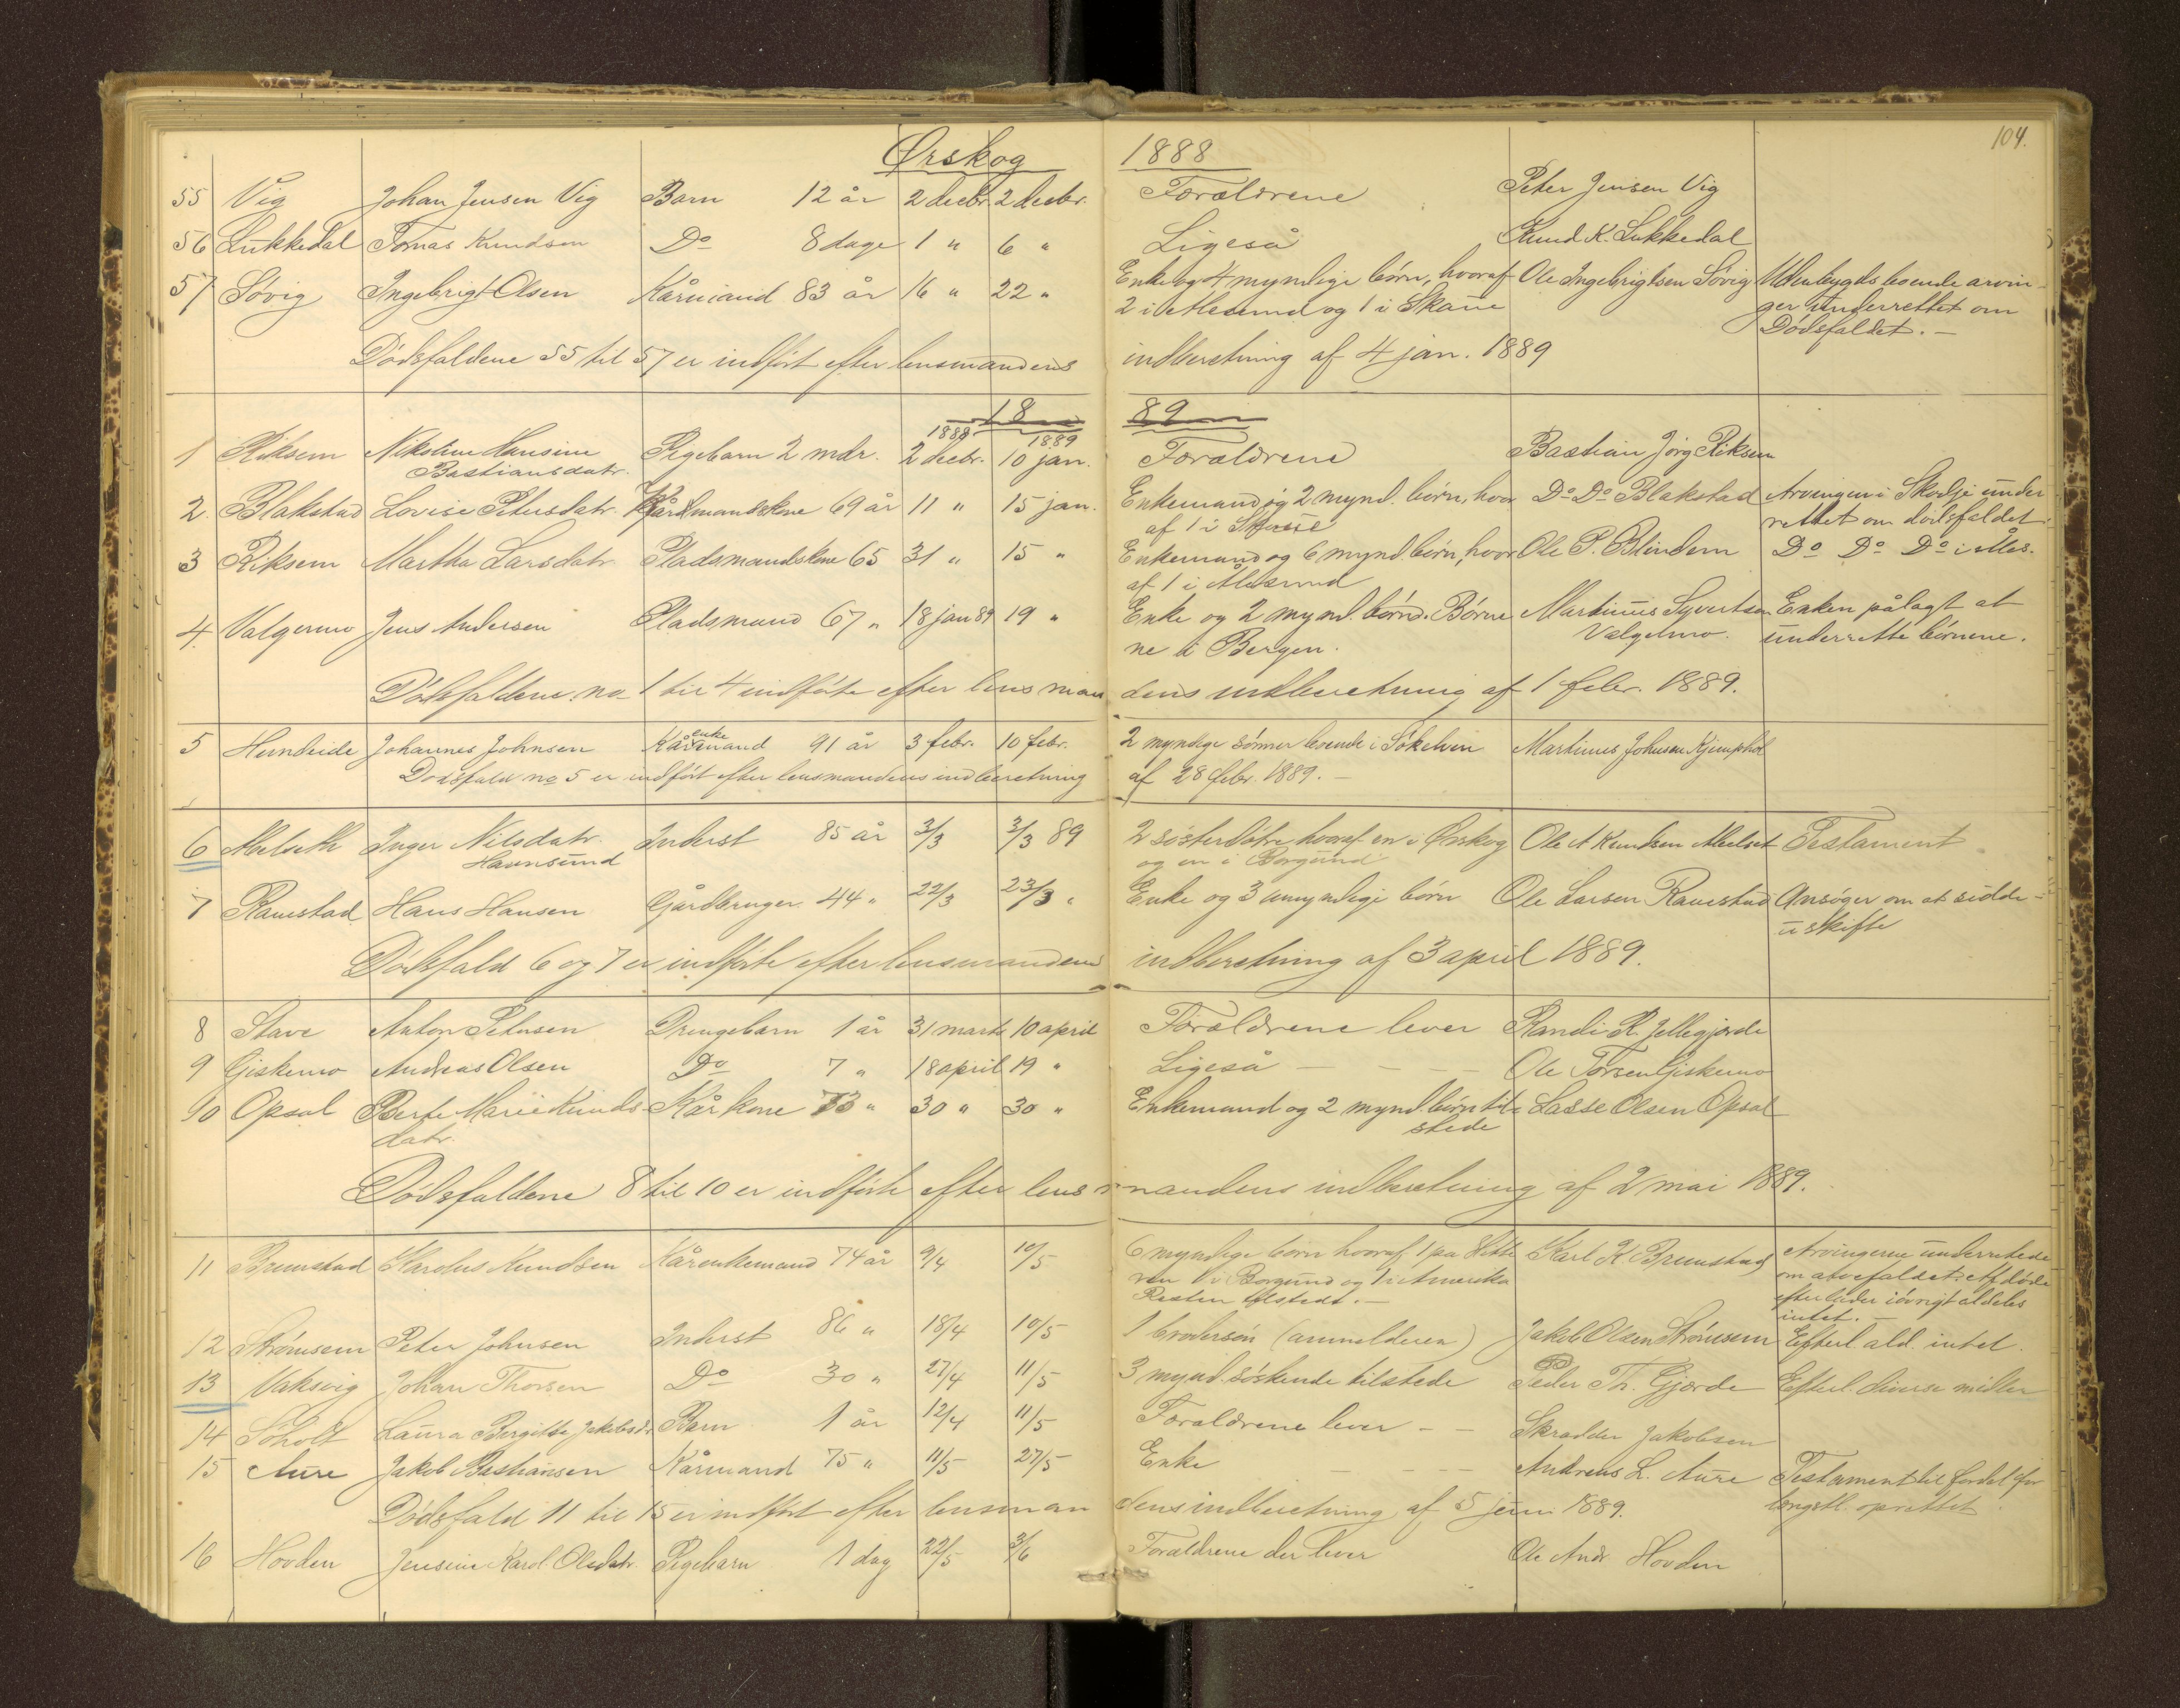 104.
Ørskog 1888
55 Vig Johan Jensen Vig Barn 12 år 2 decbr. 2 decbr. Forældrene Peter Jensen Vig
56 Lukkedal Tomas Knudsen Do 8 dage 1 " 6 " Ligeså Knud K. Lukkedal
57 Søvig Ingebrigt Olsen Kårmand 83 år 16 " 22 " Enke og 4 myndige børn, hvoraf Ole Ingebrigtsen Søvig Udenbygds boende arvin-
2 i Ålesund og 1 i Skaue ger underrettet om
Dødsfaldet. -
Dødsfaldene 55 til 57 er indført efter lensmandens indberetning af 4 jan. 1889
18 89
1888 1889
1 Riksem Nikoline Hansine Pigebarn 2 mdr. 2 decbr. 10 jan. Forældrene Bastian Jörg. Riksem
Bastiansdatr.
2. Blakstad Lovise Petersdatr. Gårdmandskone 69 år 11 " 15 jan. Enkemand og 2 mynd. børn, hvor Do Do Blakstad Arvingen i Skodje under
af 1 i Skaue rettet om dödsfaldet.
3 Riksem Martha Larsdatr. Pladsmandskone 65 31 " 15 " Enkemand og 6 mynd. børn, hvor Ole P. Blindem Do Do Do i Åles.
af 1 i Ålesund
4. Valgermo Jens Andersen Pladsmand 67 " 18 jan 89 19 " Enke og 2 mynd. børn. Børne Martinus Syvertsen Enken pålagt at
ne i Bergen. Valgermo. underrette börnene.
Dødsfaldene no 1 til 4 indførte efter lensmandens indberetning af 1 febr. 1889.
enke
5 Hundeide Johannes Johnsen Kårmand 91 år 3 febr. 10 febr. 2 myndige sönner boende i Sökelven Martinus Johnsen Kjemphol
Dødsfald no 5 er indført efter lensmandens indberetning af 28 febr. 1889. -
6 Abelseth Inger Nilsdatr. Inderst 85 år 3/3 3/3 89 2 søsterdøtre hvoraf en i Ørskog Ole A Knudsen Abelset Testament
Havnsund og en i Borgund
7 Ramstad Hans Hansen Gårdbruger 44 " 22/3 23/3 " Enke og 3 umyndige børn Ole Larsen Ramstad Ansøger om at sidde
i uskifte
Dødsfald 6 og 7 er indførte efter lensmandens indberetning af 3 april 1889.
8 Stave Anton Petersen Drengebarn 1 år 31 marts 10 april Forældrene lever Randi R. Jellegjerde
9 Giskemo Andreas Olsen Do 7 " 18 april 19 " Ligeså - - - - Ole Torsen Giskemo
10 Opsal Berte Marie Knuds Kårkone 73 " 30 " 30 " Enkemand og 2 mynd. børn til- Lasse Olsen Opsal
datr. stede
Dødsfaldene 8 til 10 er indførte efter lensmandens indberetning af 2 mai 1889.
11 Brunstad Karolus Knudsen Kårenkemand 74 år 9/4 10/5 6 myndige børn hvoraf 1 på Hitte Karl K Brunstad Arvingerne underrettede
ren 1 i Borgund og 1 i Amerika om dødsfaldet. Afdøde
Resten tilstede. - efterlader iövrigt aldeles
intet. -
12 Strømsem Peter Johnsen Inderst 86 " 18/4 10/5 1 brodersøn (anmelderen) Jakob Olsen Strömsem Efterl. ald. intet.
13 Vaksvig Johan Thorsen Do 30 " 27/4 11/5 3 mynd. söskende tilstede Peder Th. Gjærde Efterl. diverse midler
14 Söholt Laura Bergitte Jakobsdr. Barn 1 år 12/4 11/5 Forældrene lever - - Skrædder Jakobsen
15 Aure Jakob Bastiansen Kårmand 75 " 11/5 27/5 Enke - - - - Andreas L. Aure Testament til fordel for
Dødsfald 11 til 15 er indført efter lensmandens indberetning af 5 juni 1889. længstl. oprettet.
16 Hovden Jensine Karol. Olsdatr. Pigebarn 1 dag 22/5 3/6 Forældrene der lever Ole Andr. Hovden